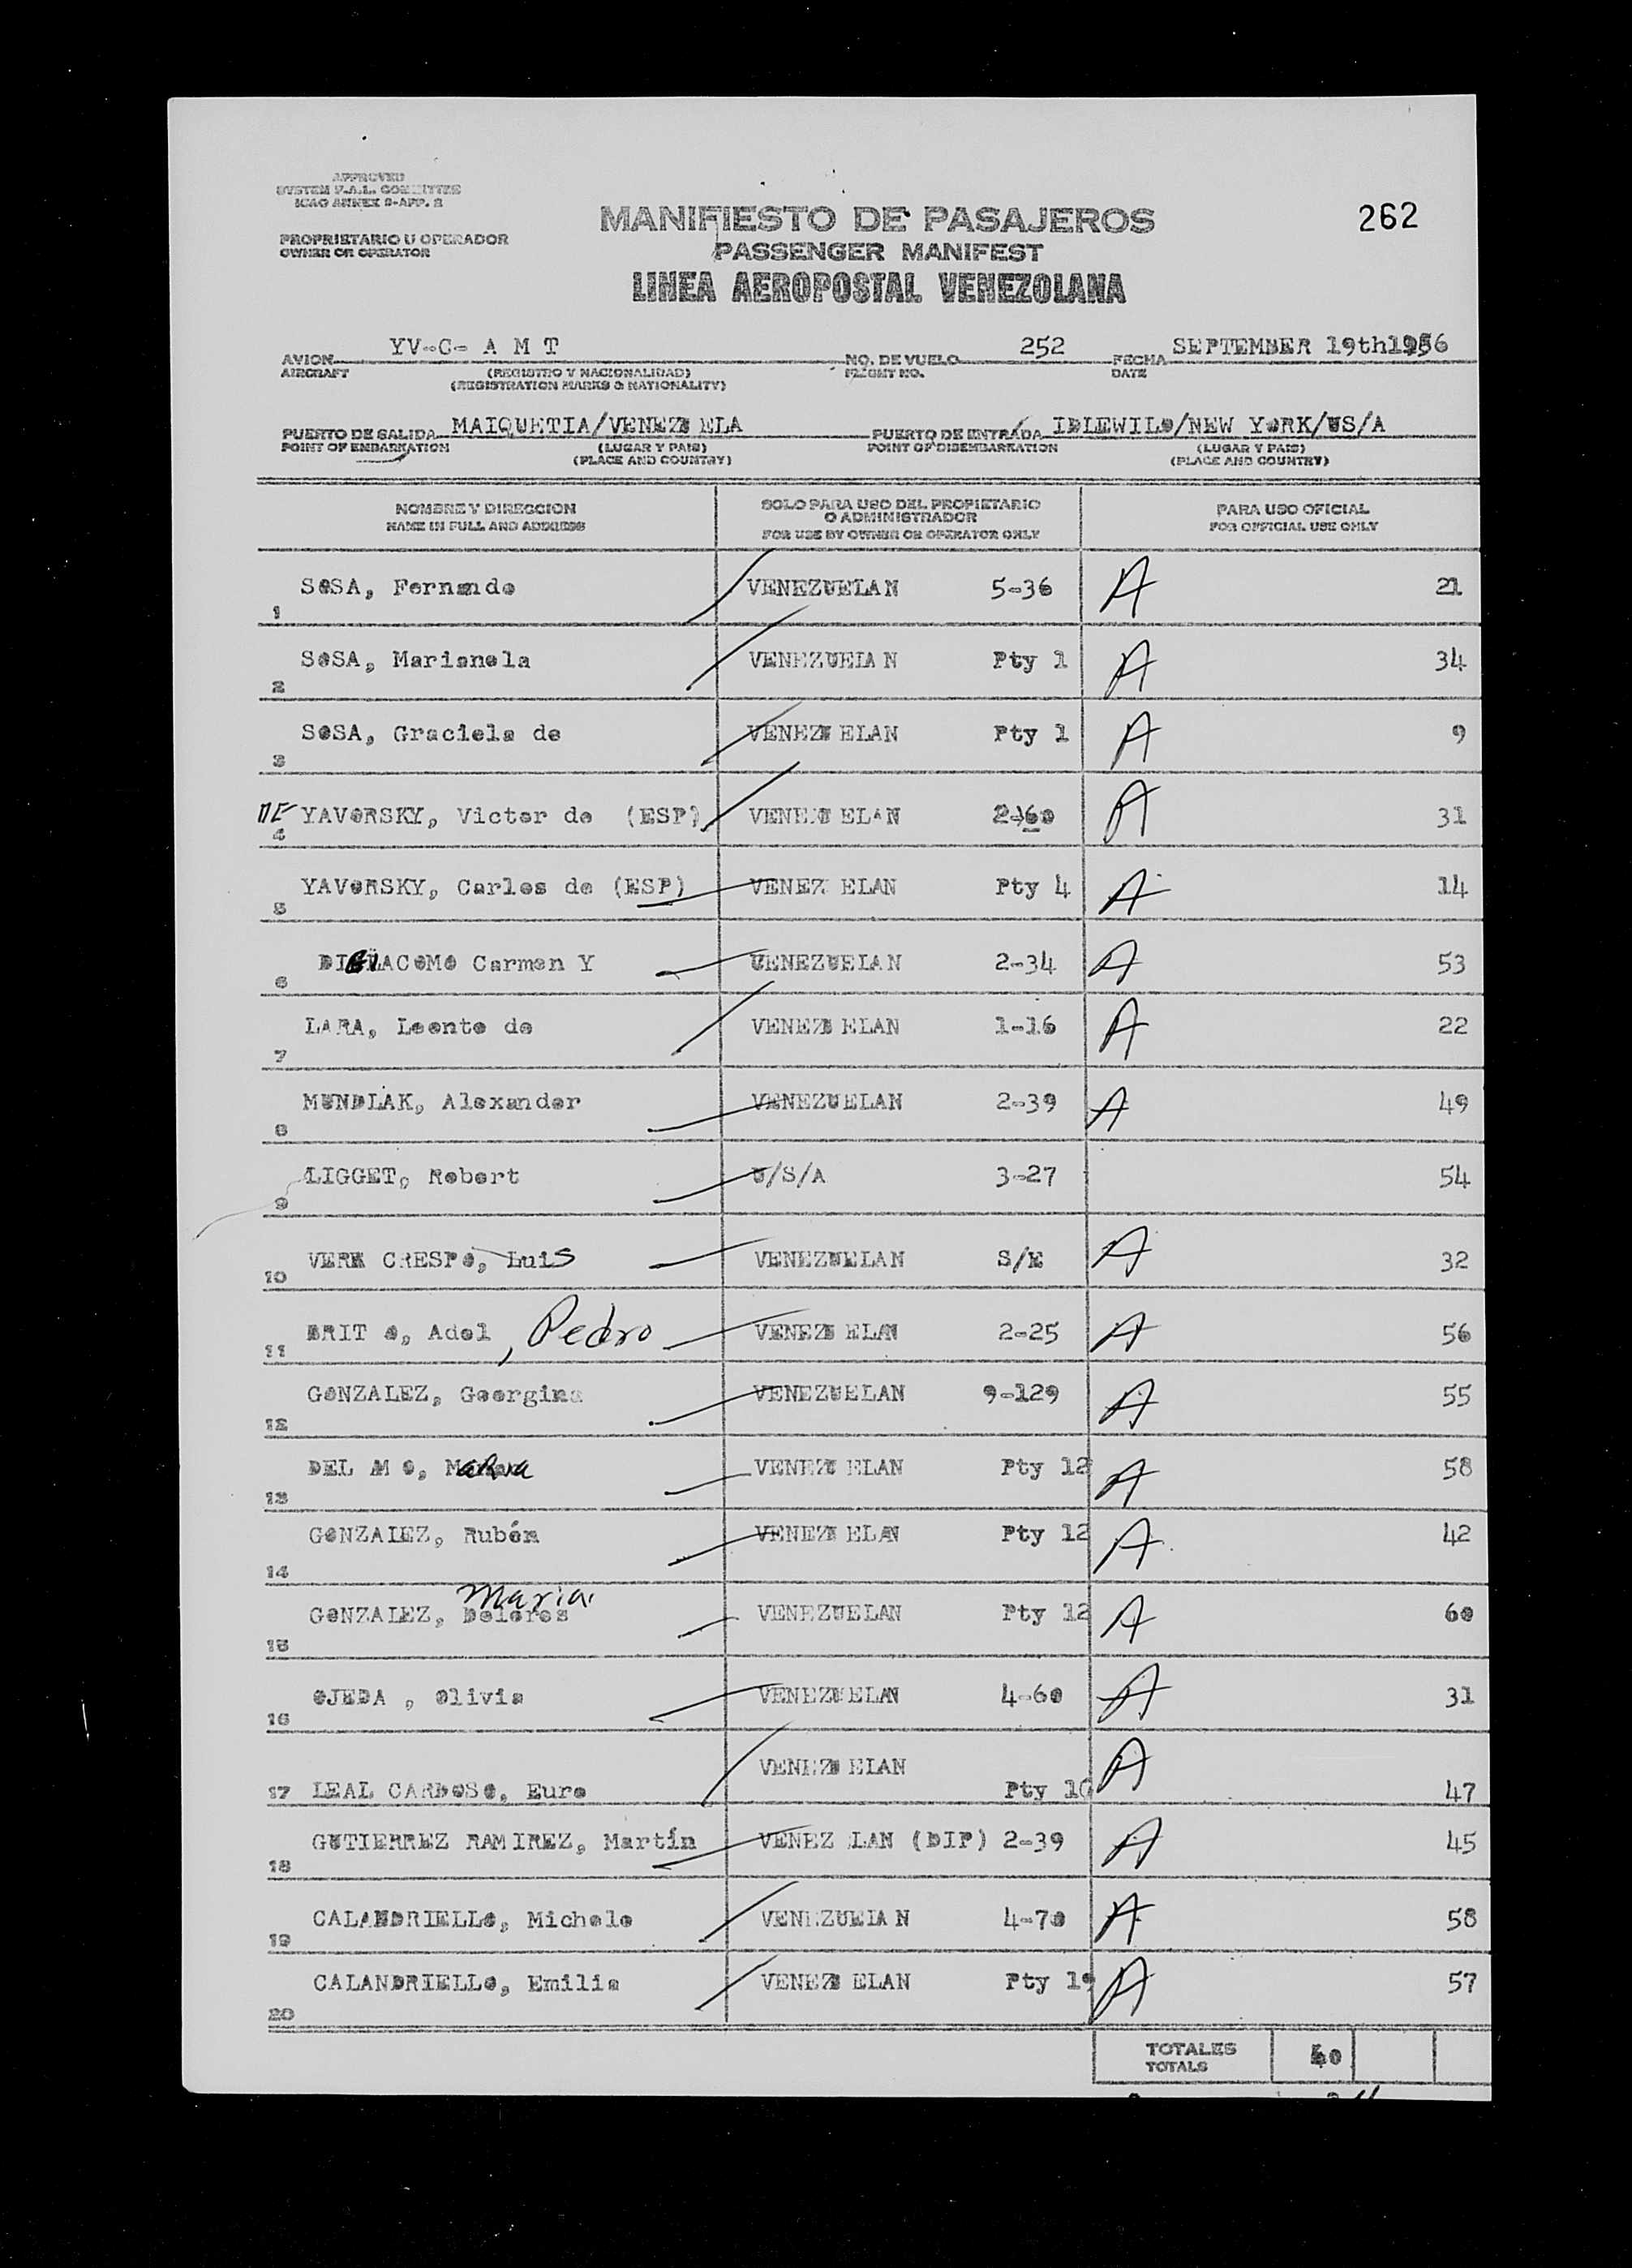 APPROVED
SYSTEM F.A.L. COMMITTEE
ICAO ANNEX 9-APP. 2
262
MANIFIESTO DE PASAJEROS
PROPRIETARIO U OPERADOR
OWNER OR OPERATOR
PASSENGER MANIFEST
LINEA AEROPOSTAL VENEZOLANA
AVION YV-C- A M T NO. DE VUELO 252 FECHA SEPTEMBER 19th1956
AIRCRAFT (REGISTRO Y NACIONALIDAD) FLIGHT NO. DATE
(REGISTRATION MARKS & NATIONALITY)
PUERTO DE SALIDA MAIQUETIA/VENEZUELA PUERTO DE ENTRADA IDLEWILD/NEW YORK/US/A
POINT OF EMBARKATION (LUGAR Y PAIS) POINT OF DISEMBARKATION (LUGAR Y PAIS)
(PLACE AND COUNTRY) (PLACE AND COUNTRY)
NOMBRE Y DIRECCION SOLO PARA USO DEL PROPIETARIO O ADMINISTRADOR PARA USO OFICIAL
NAME IN FULL AND ADDRESS FOR USE BY OWNER OR OPERATOR ONLY FOR OFFICIAL USE ONLY
1 SOSA, Fernando VENEZUELAN 5-36 A 21
2 SOSA, Marianela VENEZUELAN Pty 1 A 34
3 SOSA, Graciela de VENEZUELAN Pty 1 A 9
DE 4 YAVORSKY, Victor de (ESP) VENEZUELAN 2-60 A 31
5 YAVORSKY, Carlos de (ESP) VENEZ ELAN Pty 4 A 14
6 DIGIACOMO Carmen Y VENEZUELAN 2-34 A 53
7 LARA, Leonte de VENEZUELAN 1-16 A 22
8 MUNDLAK, Alexander VENEZUELAN 2-39 A 49
9 LIGGET, Robert U/S/A 3-27 54
10 VERK CRESPO, Luis VENEZUELAN S/E A 32
11 BRIT O, Adel, Pedro VENEZUELAN 2-25 A 56
12 GONZALEZ, Georgina VENEZUELAN 9-129 A 55
13 DEL M O, VENEZUELAN Pty 12 A 58
14 GONZALEZ, Rubén VENEZUELAN Pty 12 A 42
Maria
15 GONZALEZ, Dolores VENEZUELAN Pty 12 A 60
16 OJEDA , Olivia VENEZUELAN 4-60 A 31
17 LEAL CARDOSO, Euro VENEZUELAN Pty 16 A 47
18 GUTIERREZ RAMIREZ, Martín VENEZ LAN (DIP) 2-39 A 45
19 CALANDRIELLO, Michele VENEZUELAN 4-70 A 58
20 CALANDRIELLO, Emilia VENEZUELAN Pty 19 A 57
TOTALES
TOTALS